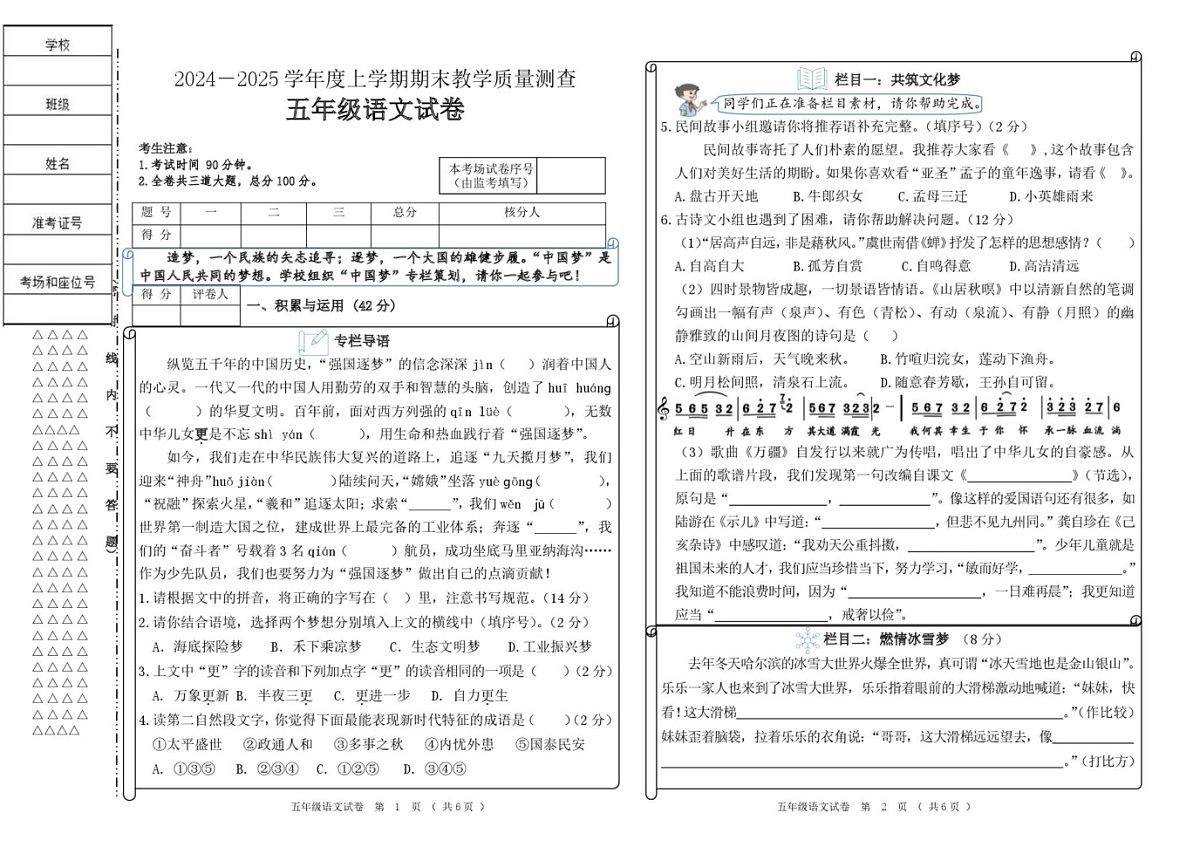 学校
班级
姓名
准考证号
考场和座位号
线
内
不
要
答
题)
2024－2025学年度上学期期末教学质量测查
五年级语文试卷
考生注意：
1.考试时间 90分钟。
2.全卷共三道大题，总分100分。
本考场试卷序号
（由监考填写）
题 号 一 二 三 总分 核分人
得 分
造梦，一个民族的矢志追寻；逐梦，一个大国的雄健步履。“中国梦”是
中国人民共同的梦想。学校组织“中国梦”专栏策划，请你一起参与吧！
得 分 评卷人
一、积累与运用 (42 分)
专栏导语
纵览五千年的中国历史，“强国逐梦”的信念深深 jìn（ ）润着中国人
的心灵。一代又一代的中国人用勤劳的双手和智慧的头脑，创造了 huī huáng
（ ）的华夏文明。百年前，面对西方列强的 qīn lüè（ ），无数
中华儿女更是不忘 shì yán（ ），用生命和热血践行着“强国逐梦”。
如今，我们走在中华民族伟大复兴的道路上，追逐“九天揽月梦”，我们
迎来“神舟”huǒ jiàn（ ）陆续问天，“嫦娥”坐落 yuè gōng（ ），
“祝融”探索火星，“羲和”追逐太阳；求索“______”，我们 wěn jū（ ）
世界第一制造大国之位，建成世界上最完备的工业体系；奔逐“______”，我
们的“奋斗者”号载着 3 名 qián（ ）航员，成功坐底马里亚纳海沟……
作为少先队员，我们也要努力为“强国逐梦”做出自己的点滴贡献！
1.请根据文中的拼音，将正确的字写在（ ）里，注意书写规范。（14 分）
2.请你结合语境，选择两个梦想分别填入上文的横线中（填序号）。（2 分）
A．海底探险梦 B．禾下乘凉梦 C．生态文明梦 D.工业振兴梦
3.上文中“更”字的读音和下列加点字“更”的读音相同的一项是（ ）（2 分）
A. 万象更新 B. 半夜三更 C. 更进一步 D. 自力更生
4.读第二自然段文字，你觉得下面最能表现新时代特征的成语是（ ）（2 分）
①太平盛世 ②政通人和 ③多事之秋 ④内忧外患 ⑤国泰民安
A. ①③⑤ B. ②③④ C. ①②⑤ D. ③④⑤
五年级语文试卷 第 1 页 （ 共 6 页 ）
栏目一：共筑文化梦
同学们正在准备栏目素材，请你帮助完成。
5.民间故事小组邀请你将推荐语补充完整。（填序号）（2 分）
民间故事寄托了人们朴素的愿望。我推荐大家看《 》,这个故事包含
人们对美好生活的期盼。如果你喜欢看“亚圣”孟子的童年逸事，请看《 》。
A.盘古开天地 B.牛郎织女 C.孟母三迁 D.小英雄雨来
6.古诗文小组也遇到了困难，请你帮助解决问题。（12 分）
（1）“居高声自远，非是藉秋风。”虞世南借《蝉》抒发了怎样的思想感情？（ ）
A.自高自大 B.孤芳自赏 C.自鸣得意 D.高洁清远
（2）四时景物皆成趣，一切景语皆情语。《山居秋暝》中以清新自然的笔调
勾画出一幅有声（泉声）、有色（青松）、有动（泉流）、有静（月照）的幽
静雅致的山间月夜图的诗句是（ ）
A.空山新雨后，天气晚来秋。 B.竹喧归浣女，莲动下渔舟。
C.明月松间照，清泉石上流。 D.随意春芳歇，王孙自可留。
5 6 5 3 2 6 2 7 7 2 5 6 7 3 2 3 2 － 5 6 7 3 2 6 2 7 2 3 2 3 2 7 6
红 日 升 在 东 方 其大道 满霞 光 我何其 幸生 于 你 怀 承一脉 血流 淌
（3）歌曲《万疆》自发行以来就广为传唱，唱出了中华儿女的自豪感。从
上面的歌谱片段，我们发现第一句改编自课文《______________》（节选），
原句是“______________，______________”。像这样的爱国语句还有很多，如
陆游在《示儿》中写道：“________________，但悲不见九州同。”龚自珍在《己
亥杂诗》中感叹道：“我劝天公重抖擞，__________________”。少年儿童就是
祖国未来的人才，我们应当珍惜当下，努力学习，“敏而好学，______________。”
我知道不能浪费时间，因为“___________________，一日难再晨”；我更知道
应当“________________，戒奢以俭”。
栏目二：燃情冰雪梦 （8 分）
去年冬天哈尔滨的冰雪大世界火爆全世界，真可谓“冰天雪地也是金山银山”。
乐乐一家人也来到了冰雪大世界，乐乐指着眼前的大滑梯激动地喊道：“妹妹，快
看！这大滑梯______________________________________________。”（作比较）
妹妹歪着脑袋，拉着乐乐的衣角说：“哥哥，这大滑梯远远望去，像____________
__________________________________________________________。”（打比方）
五年级语文试卷 第 2 页 （ 共 6 页 ）